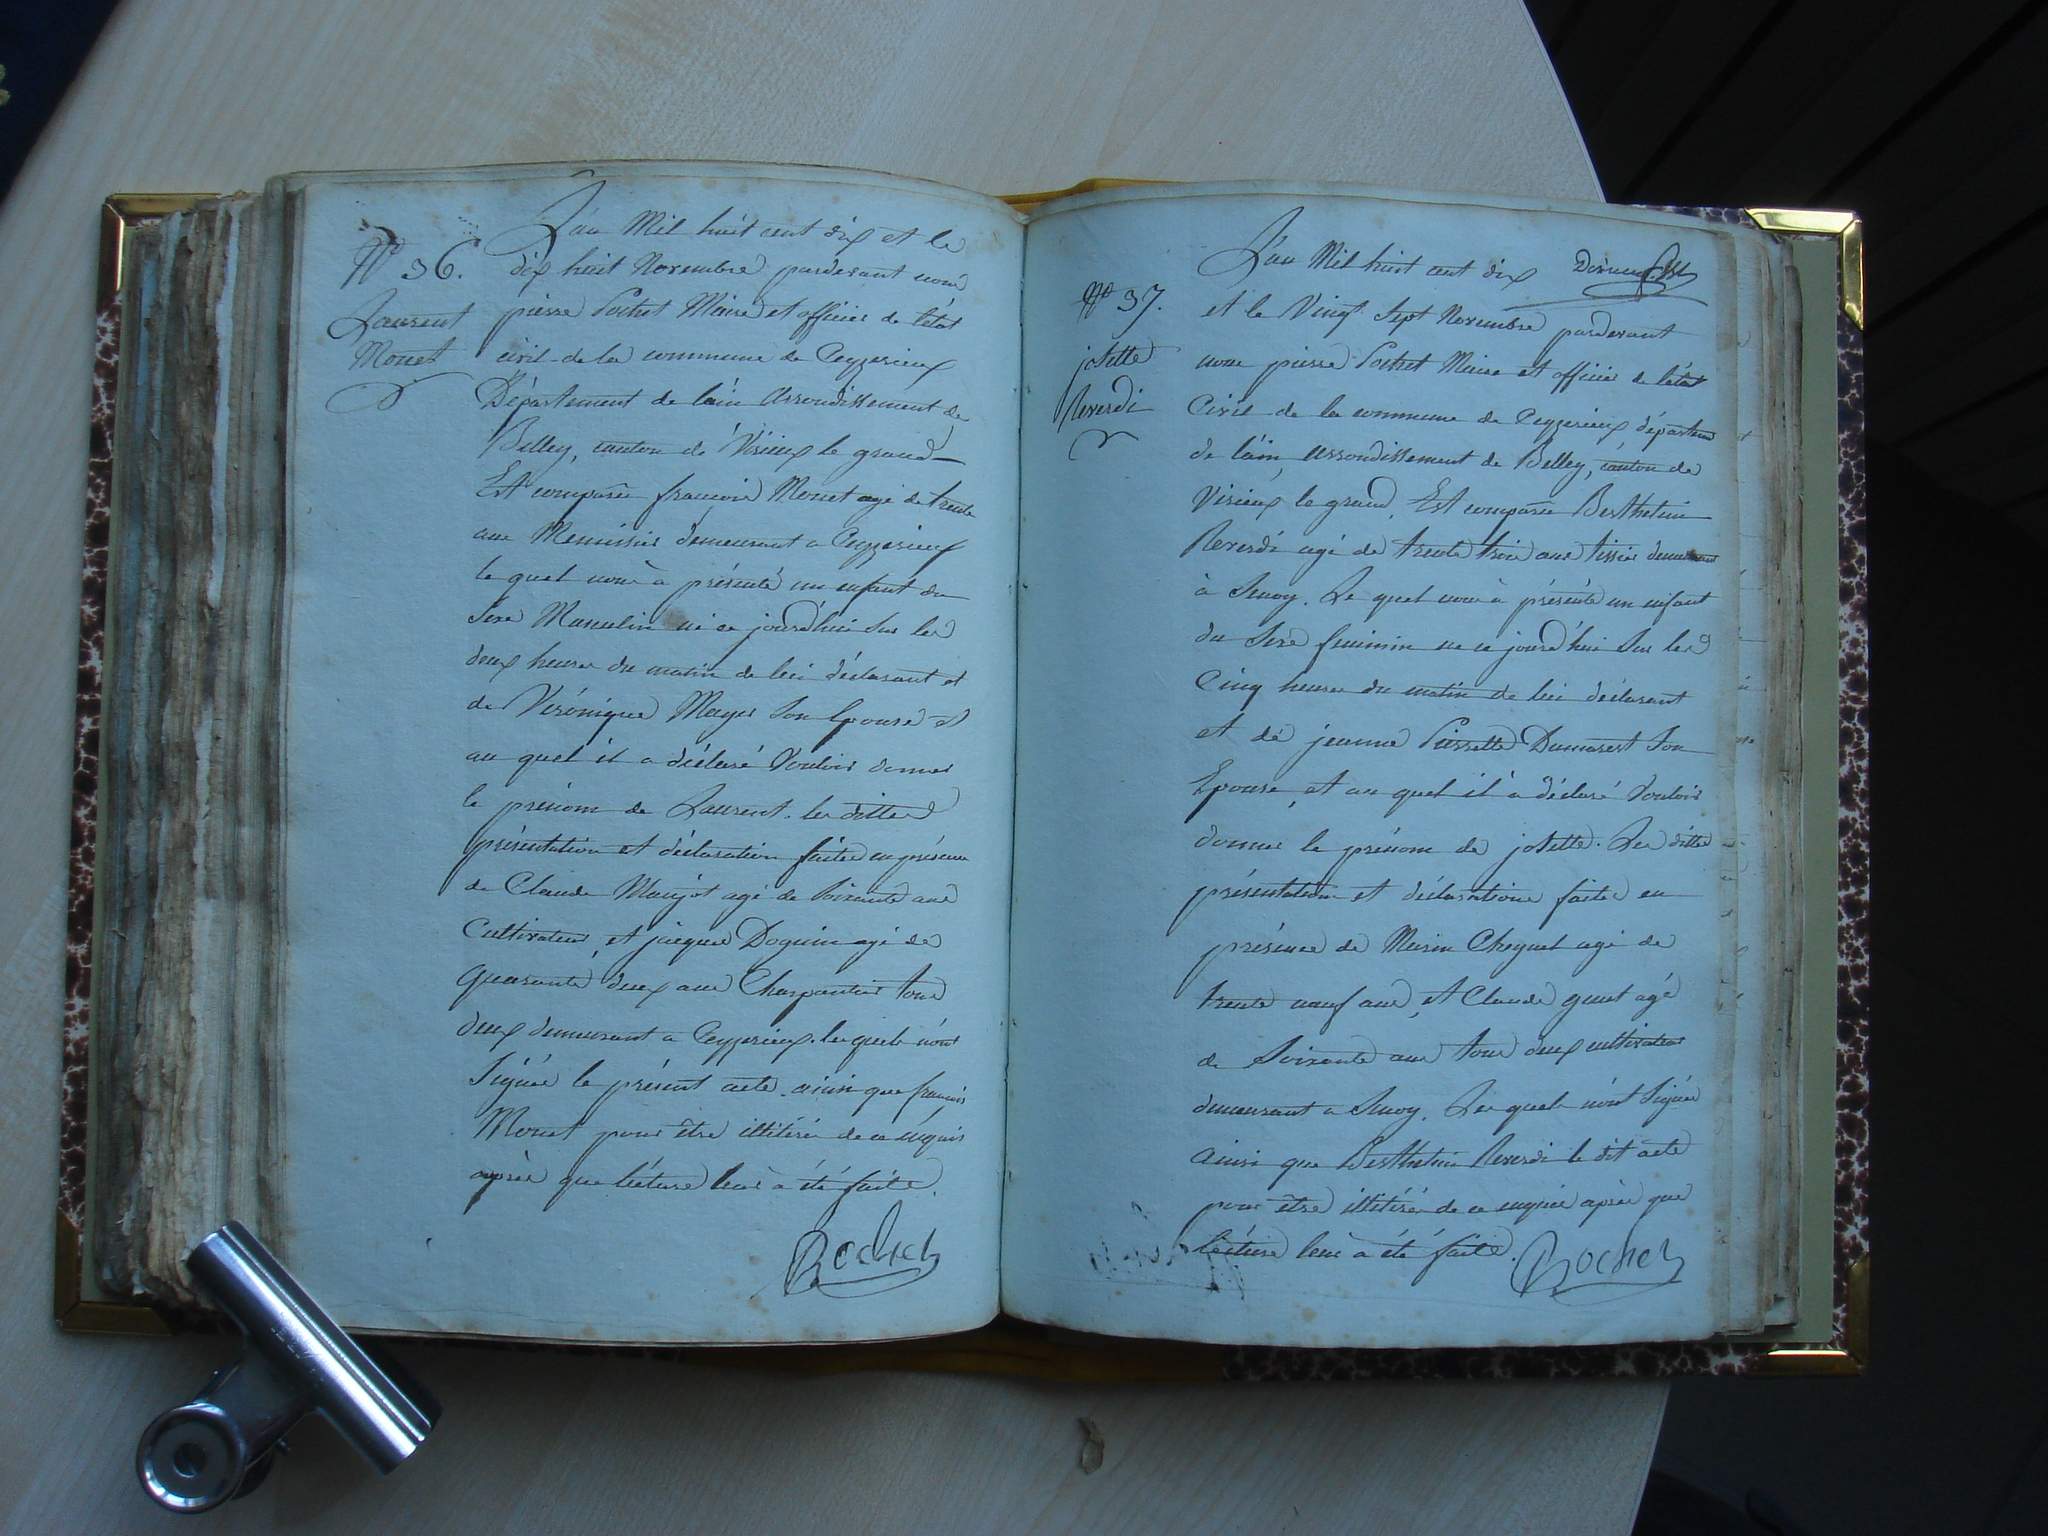 N° 36.
Laurent
Monet
L'an Mil huit cent dix et le
dix huit Novembre pardevant nous
pierre Pochet Maire et officier de l'état
civil de la commune de Ceyzerieux
Département de l'ain Arrondissement de
Belley, canton de Virieux le grand
Est comparu françois Monet agé de trente
ans Menuisier demeurant a Ceyzerieux
le quel nous à présenté un enfant du
Sexe Masculin né ce jourd'hui sur les
deux heures du matin de lui déclarant et
de Véronique Mayer son Epouse et
au quel il a déclaré Vouloir donner
le prénom de Laurent. les dittes
présentation et déclaration faites en présence
de Claude Manjot agé de soixante ans
Cultivateur, et jacques Doguin agé de
quarante deux ans Charpentier tous
deux demeurant a Ceyzerieux. les quels n'ont
signés le présent acte ainsi que françois
Monet pour être illitérés de ce enquis
après que lécture leur à été faite.
Pochet
N° 37.
josette
Reverdi
L'an Mil huit cent dix
et le Vingt Sept Novembre pardevant
nous pierre Pochet Maire et officier de l'état
Civil de la commune de Ceyzerieux départem
de l'ain, arrondissement de Belley, canton de
Virieux le grand, Est comparu Berthelmi
Reverdi agé de trente trois ans tissier demeurant
à Avoy. Le quel nous à présenté un enfant
du Sexe feminin né ce jourd'hui sur les
Cinq heures du matin de lui déclarant
et de jeanne Pierrette Dumarest son
Epouse, et au quel il à déclaré Vouloir
donner le prénom de josette. Les dittes
présentation et déclarations faites en
présence de Marin Cheynet agé de
trente neuf ans, et Claude guet agé
de Soixante ans tous deux cultivateurs
demeurant a Avoy. Les quels n'ont signés
Ainsi que Berthelmi Reverdi le dit acte
pour être illitérés de ce enquis après que
lécture leur à été faite.
Pochet